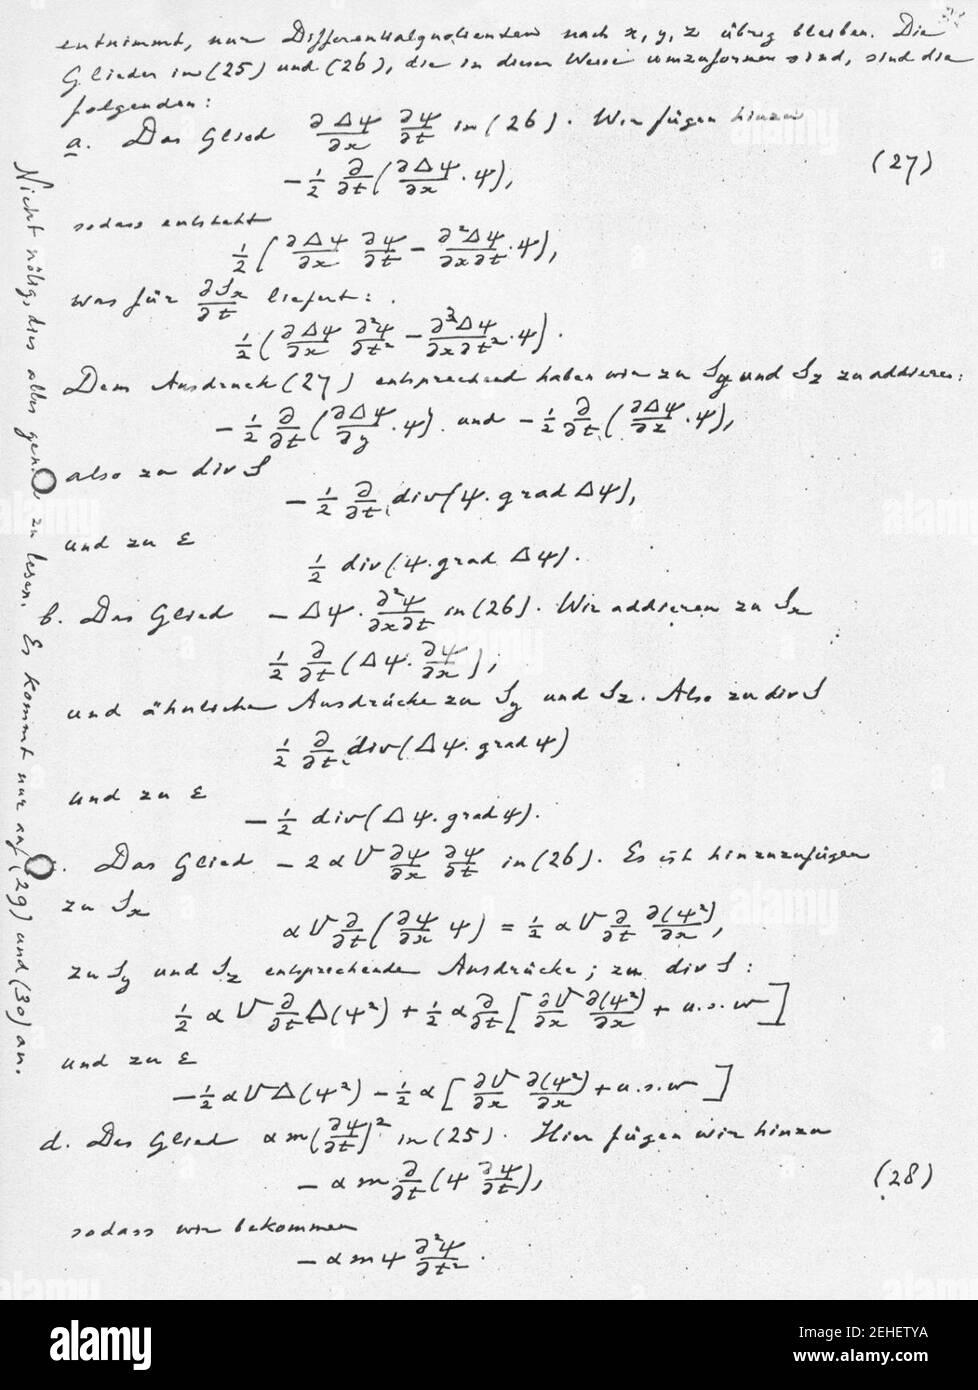 entnimmt, nur Differentialquotienten nach x, y, z übrig bleiben. Die
Glieder in (25) und (26), die in dieser Weise umzuformen sind, sind die
folgenden:
a. Das Glied ∂Δψ/∂x ∂ψ/∂t in (26). Wir fügen hinzu
-1/2 ∂/∂t (∂Δψ/∂x · ψ), (27)
sodass entsteht
1/2 (∂Δψ/∂x ∂ψ/∂t - ∂²Δψ/∂x∂t · ψ),
was für ∂Sx/∂t liefert:
1/2 (∂Δψ/∂x ∂²ψ/∂t² - ∂³Δψ/∂x∂t² · ψ).
Dem Ausdruck (27) entsprechend haben wir zu Sy und Sz zu addieren:
-1/2 ∂/∂t (∂Δψ/∂y · ψ) und -1/2 ∂/∂t (∂Δψ/∂z · ψ),
also zu div S
-1/2 ∂/∂t div(ψ · grad Δψ),
und zu ε
1/2 div(ψ · grad Δψ).
b. Das Glied -Δψ · ∂²ψ/∂x∂t in (26). Wir addieren zu Sx
1/2 ∂/∂t (Δψ · ∂ψ/∂x),
und ähnliche Ausdrücke zu Sy und Sz. Also zu div S
1/2 ∂/∂t div(Δψ · grad ψ)
und zu ε
-1/2 div(Δψ · grad ψ).
Das Glied -2αV ∂ψ/∂x ∂ψ/∂t in (26). Es ist hinzuzufügen
zu Sx
αV ∂/∂t (∂ψ/∂x ψ) = 1/2 αV ∂/∂t ∂(ψ²)/∂x,
zu Sy und Sz entsprechende Ausdrücke; zu div S:
1/2 αV ∂/∂t Δ(ψ²) + 1/2 α ∂/∂t [∂V/∂x ∂(ψ²)/∂x + u.s.w]
und zu ε
-1/2 αVΔ(ψ²) - 1/2 α [∂V/∂x ∂(ψ²)/∂x + u.s.w]
d. Das Glied αm(∂ψ/∂t)² in (25). Hier fügen wir hinzu
-αm ∂/∂t (ψ ∂ψ/∂t), (28)
sodass wir bekommen
-αmψ ∂²ψ/∂t².
Nicht nötig, dies alles gen. zu lesen. Es kommt nur auf (29) und (30) an.
alamy
Image ID: 2EHETYA
www.alamy.com